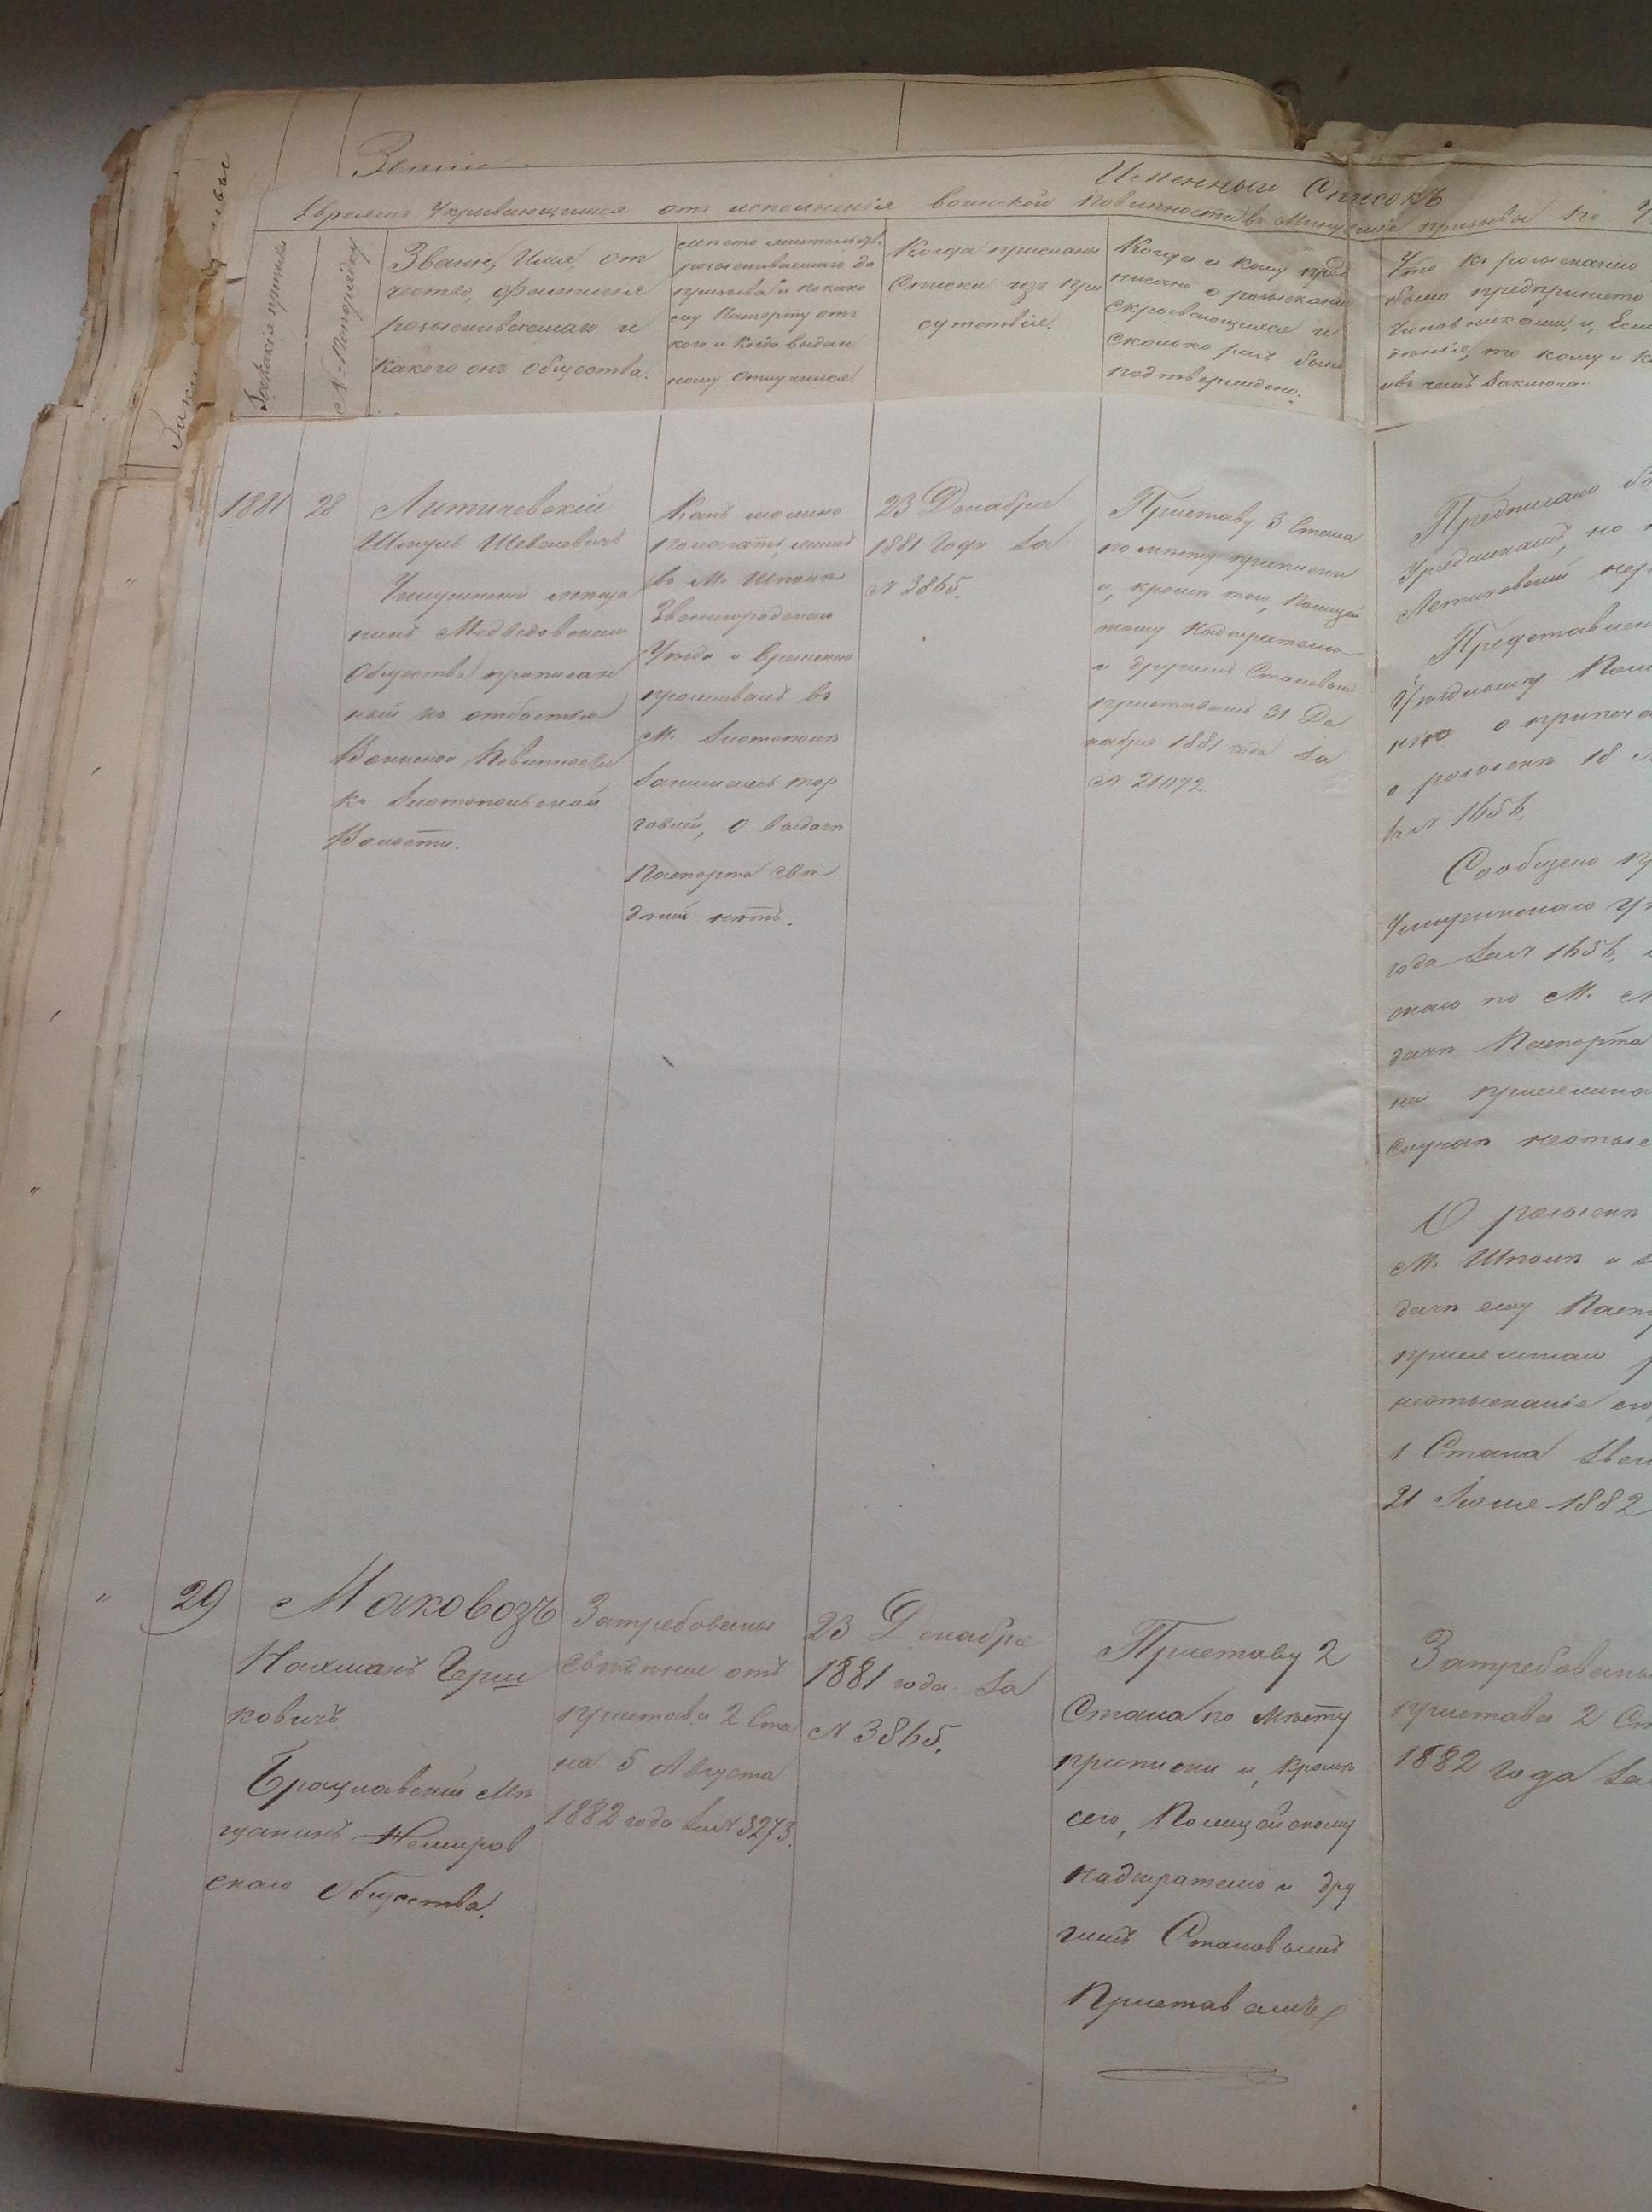 Званіе
Именный Списокъ
Евреямъ Укрывающимся отъ исполненія воинской повинности въ минувшіе призывы по
Закакіе призывы
№ Попорядку
Званіе, Имя, от
чество, фамилія
розыскиваемаго и
какого онъ общества.
Мѣсто жительства
розыскиваемаго до
призыва и по како
му паспорту отъ
кого и когда выдан
ному отлучился
Когда присланы
Списки изъ При
сутствія.
Когда и кому пред
писано о розысканіи
скрывающихся и
сколько разъ было
подтверждено.
Что къ розысканію
было предпринято
чиновниками и, Если
то кому и
въ чемъ заключа-
1881
28
Литичевскій
Шмуль Шевелевичъ
Чигиринскій мѣща
нинъ Медведовскаго
Общества приписан
ный къ отбытію
Воинской повинности
къ Златопольской
Волости.
Какъ можно
полагать, жилъ
въ М. Шполѣ
Звенигородскаго
Уѣзда и временно
проживалъ въ
М. Златополѣ
занимаясь тор
говлей, о выдачѣ
Паспорта свѣ
дѣній нѣтъ.
23 Декабря
1881 года за
№ 3865.
Приставу 3 Стана
по мѣсту приписки
и, кромѣ того, Полицей
скому Надзирателю
и другимъ Становымъ
приставамъ 31 Де
кабря 1881 года за
№ 21072
Предписано
Урядникамъ, но
Летичевскій
Представлен
Уѣздному
о
о розыскѣ 18
за № 1656.
Сообщено
Чигиринскаго
года за № 1656,
скаго по М.
дачѣ Паспорта
на
случаѣ неотыс
О розыскѣ
М. Шполѣ и
дачѣ ему Пасп
неотысканія его
1 Стана Звен
21 Іюля 1882
"
29
Маковозъ
Нахманъ Герш
ковичъ
Брацлавскій Мѣ
щанинъ Немиров
скаго Общества.
Затребованы
свѣдѣнія отъ
пристава 2 Ста
на 5 Августа
1882 года за № 3273.
23 Декабря
1881 года за
№ 3865.
Приставу 2
Стана по мѣсту
приписки и, кромѣ
сего, Полицейскому
надзирателю и дру
гимъ Становымъ
Приставамъ
Затребованы
пристава 2 Ст
1882 года за